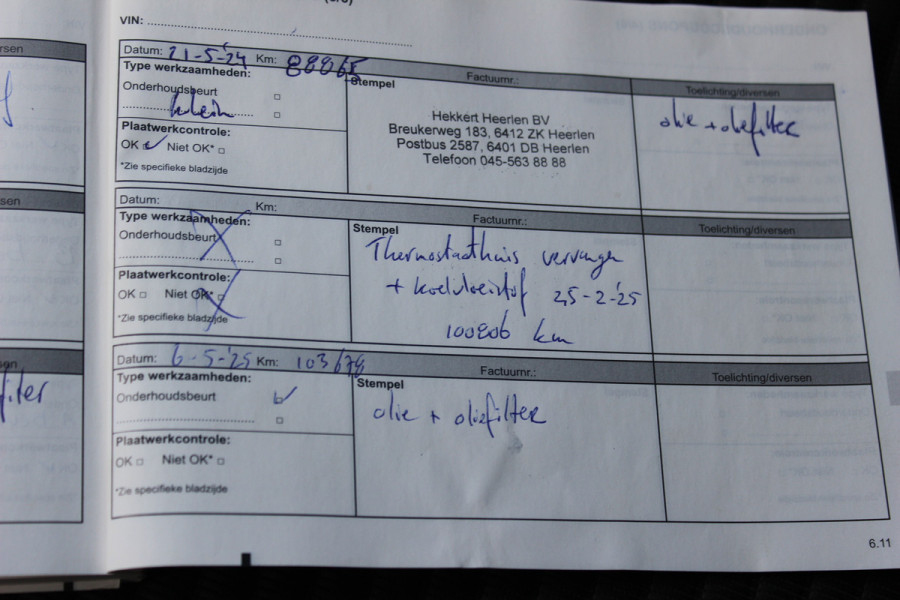 VIN:
Datum: 21-5-'24 Km: 88865
Type werkzaamheden:
Onderhoudsbeurt
klein
Plaatwerkcontrole:
OK Niet OK*
*Zie specifieke bladzijde
Stempel Factuurnr.:
Hekkert Heerlen BV
Breukerweg 183, 6412 ZK Heerlen
Postbus 2587, 6401 DB Heerlen
Telefoon 045-563 88 88
Toelichting/diversen
olie + oliefilter
Datum: Km:
Type werkzaamheden:
Onderhoudsbeurt
Plaatwerkcontrole:
OK Niet OK*
*Zie specifieke bladzijde
Stempel Factuurnr.:
Thermostaathuis vervangen
+ koelvloeistof 25-2-'25
100806 km
Toelichting/diversen
Datum: 6-5-'25 Km: 103678
Type werkzaamheden:
Onderhoudsbeurt
Plaatwerkcontrole:
OK Niet OK*
*Zie specifieke bladzijde
Stempel Factuurnr.:
olie + oliefilter
Toelichting/diversen
6.11